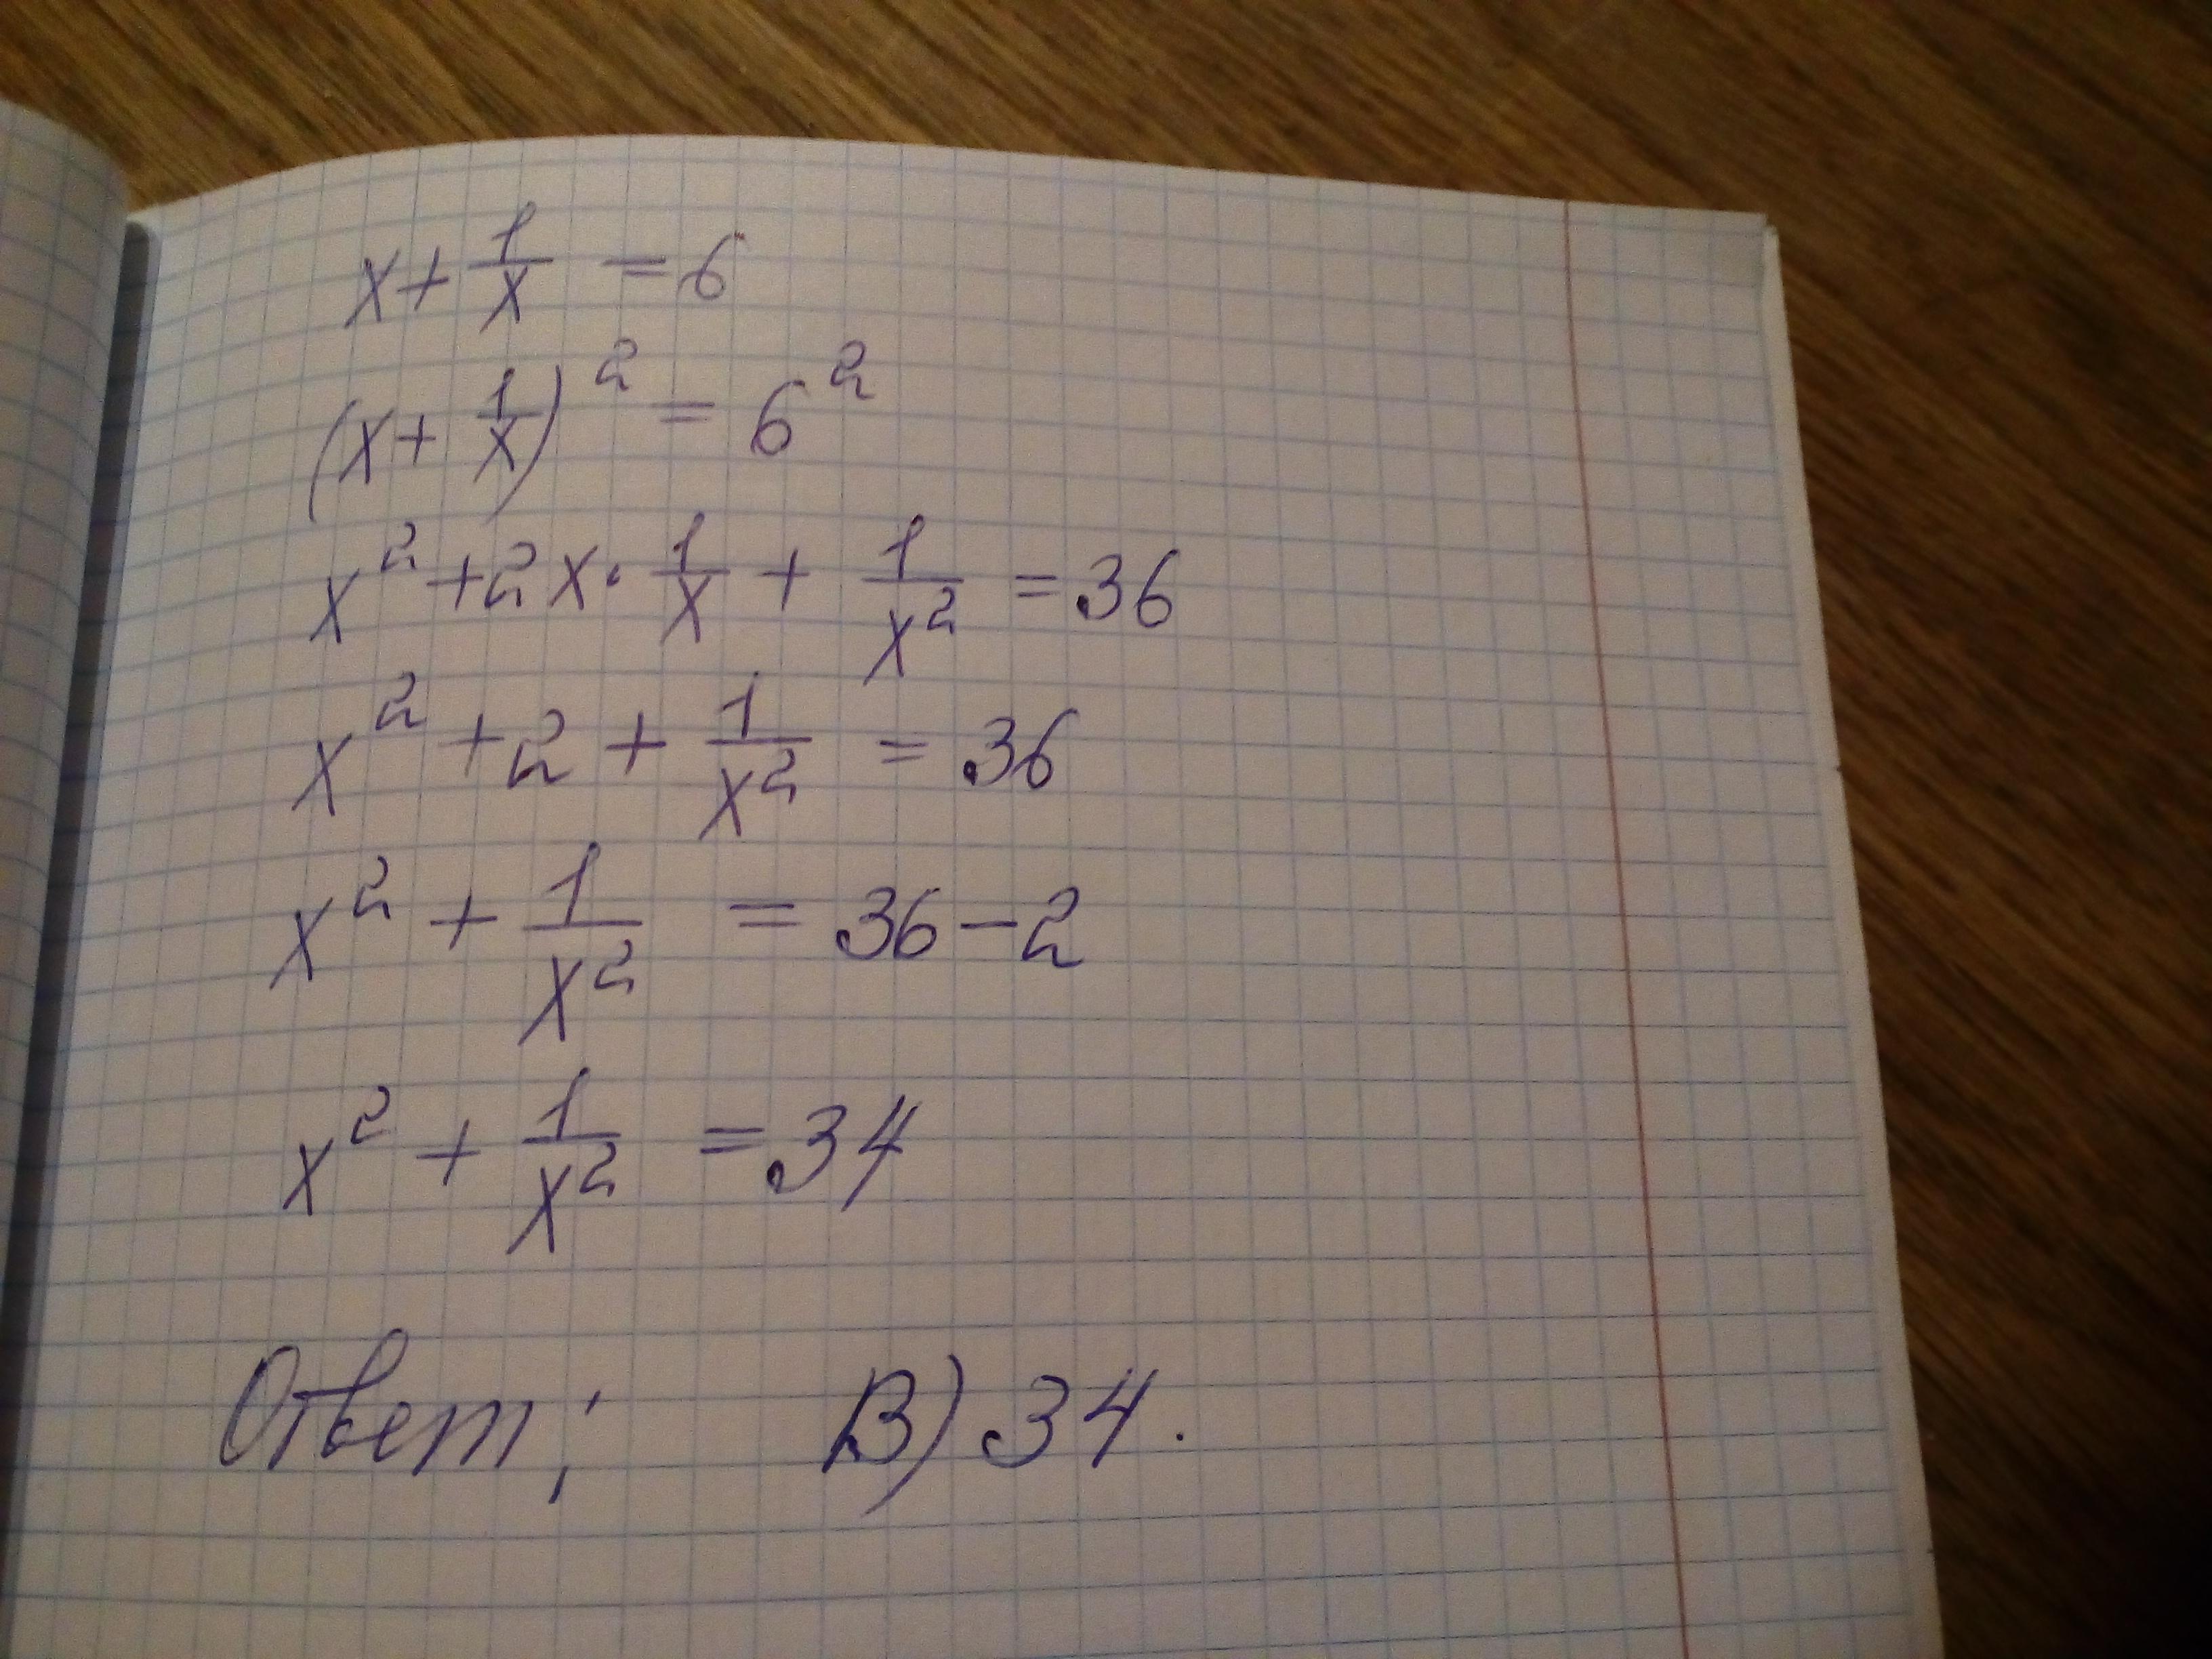 x + 1/x = 6
(x + 1/x)² = 6²
x² + 2x · 1/x + 1/x² = 36
x² + 2 + 1/x² = 36
x² + 1/x² = 36 - 2
x² + 1/x² = 34
Ответ: В) 34.